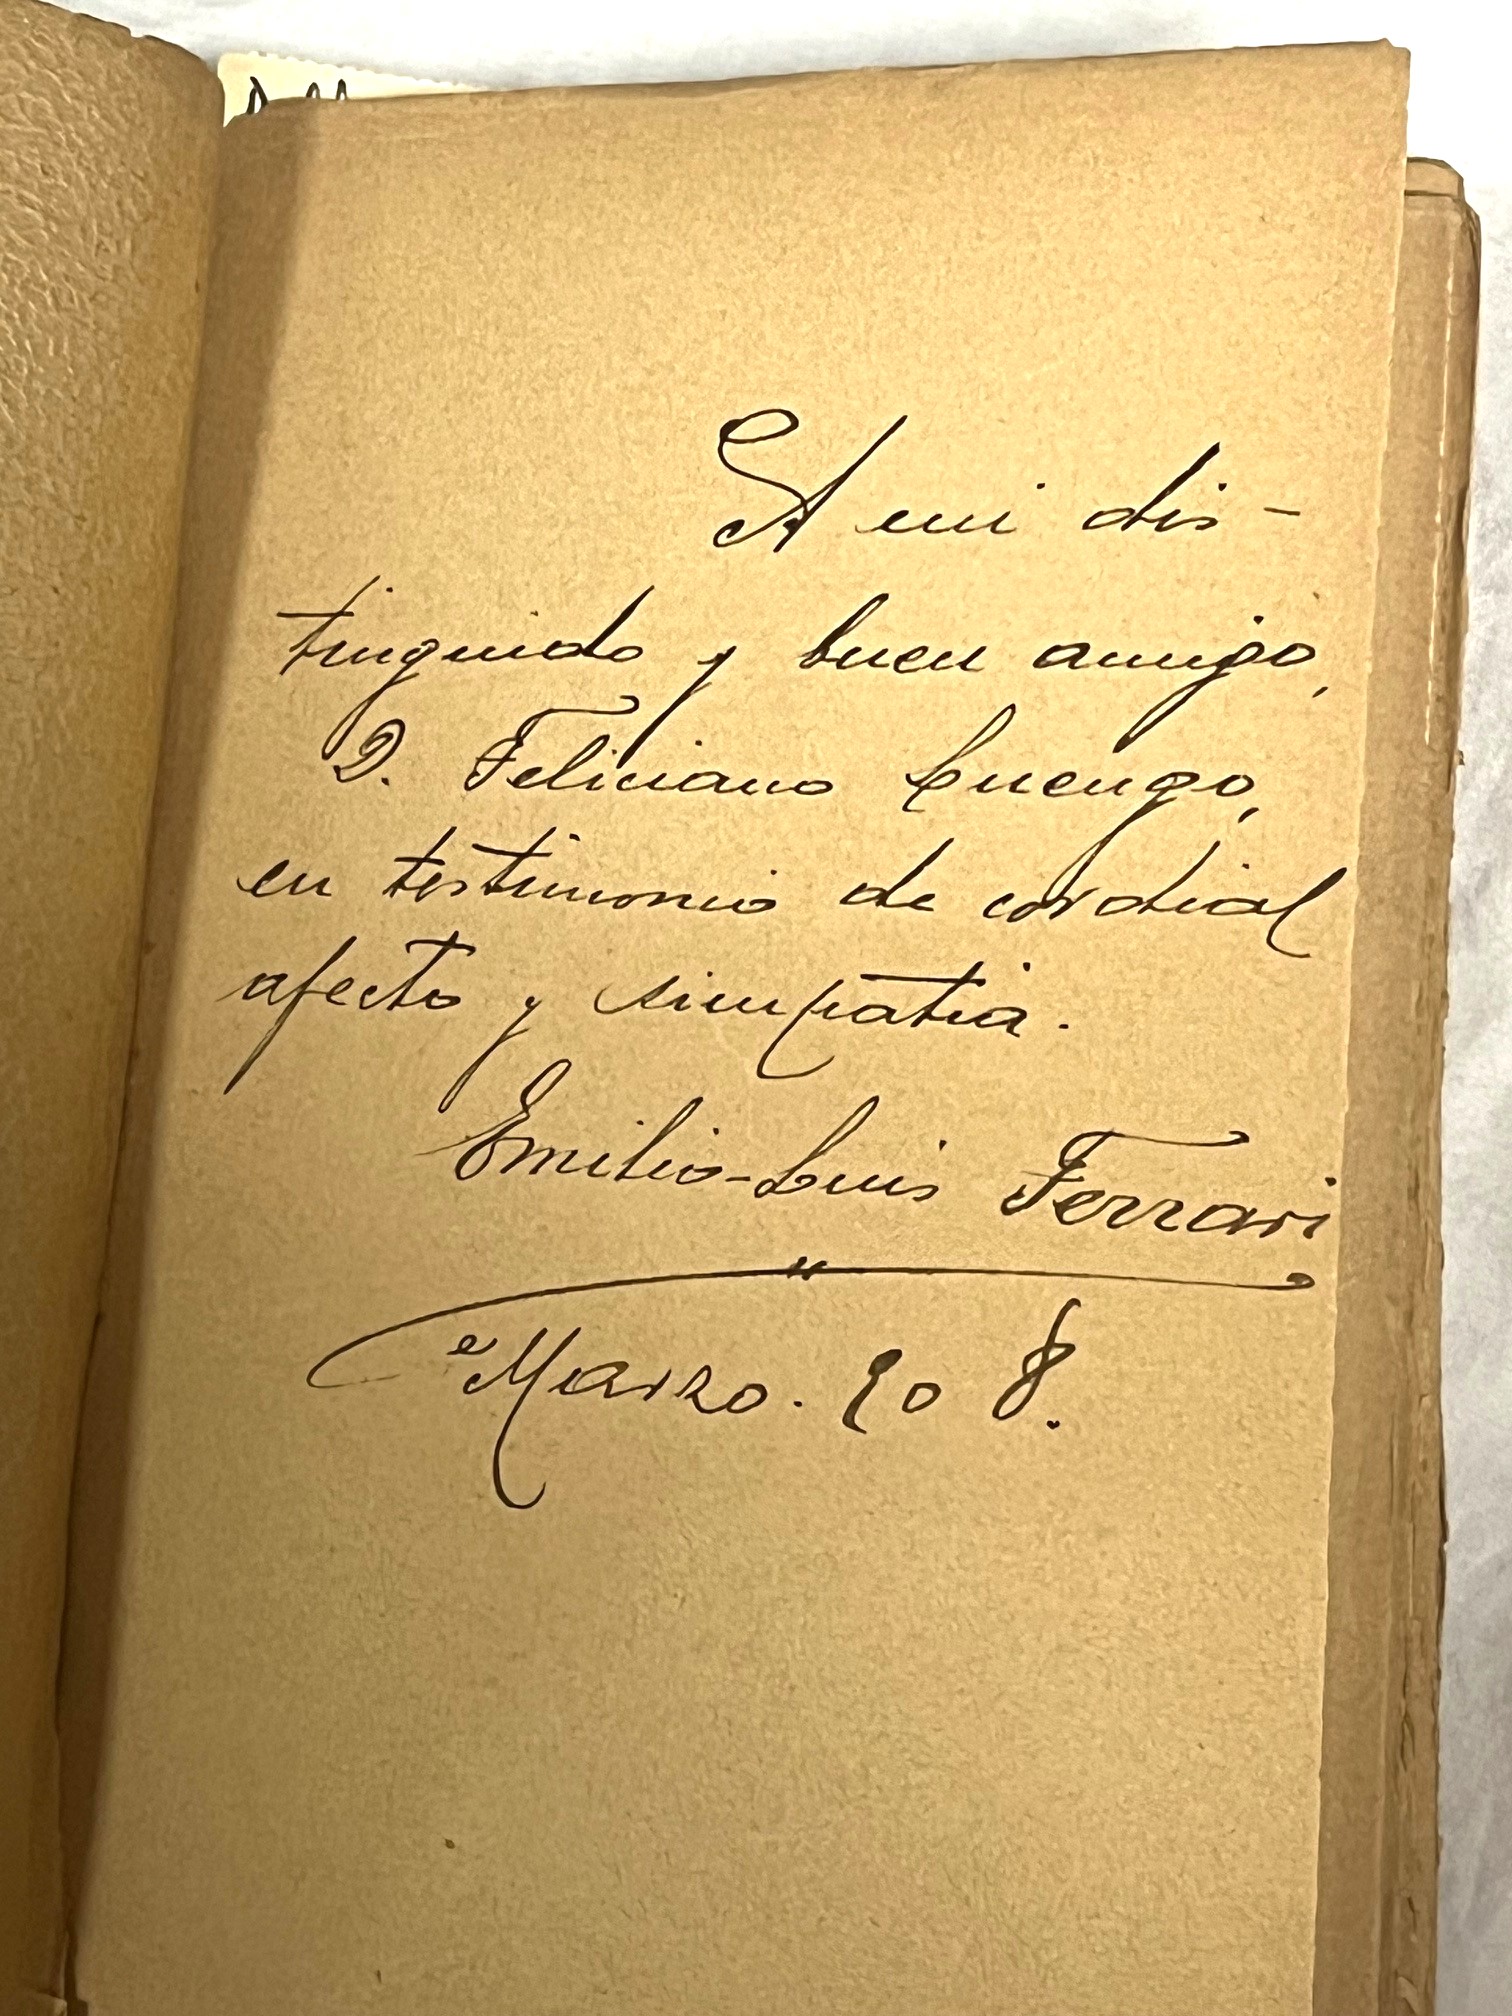 A mi dis-
tinguido y buen amigo,
D. Feliciano Cuengo,
en testimonio de cordial
afecto y simpatia.
Emilio-Luis Ferrari
Marzo. 908.